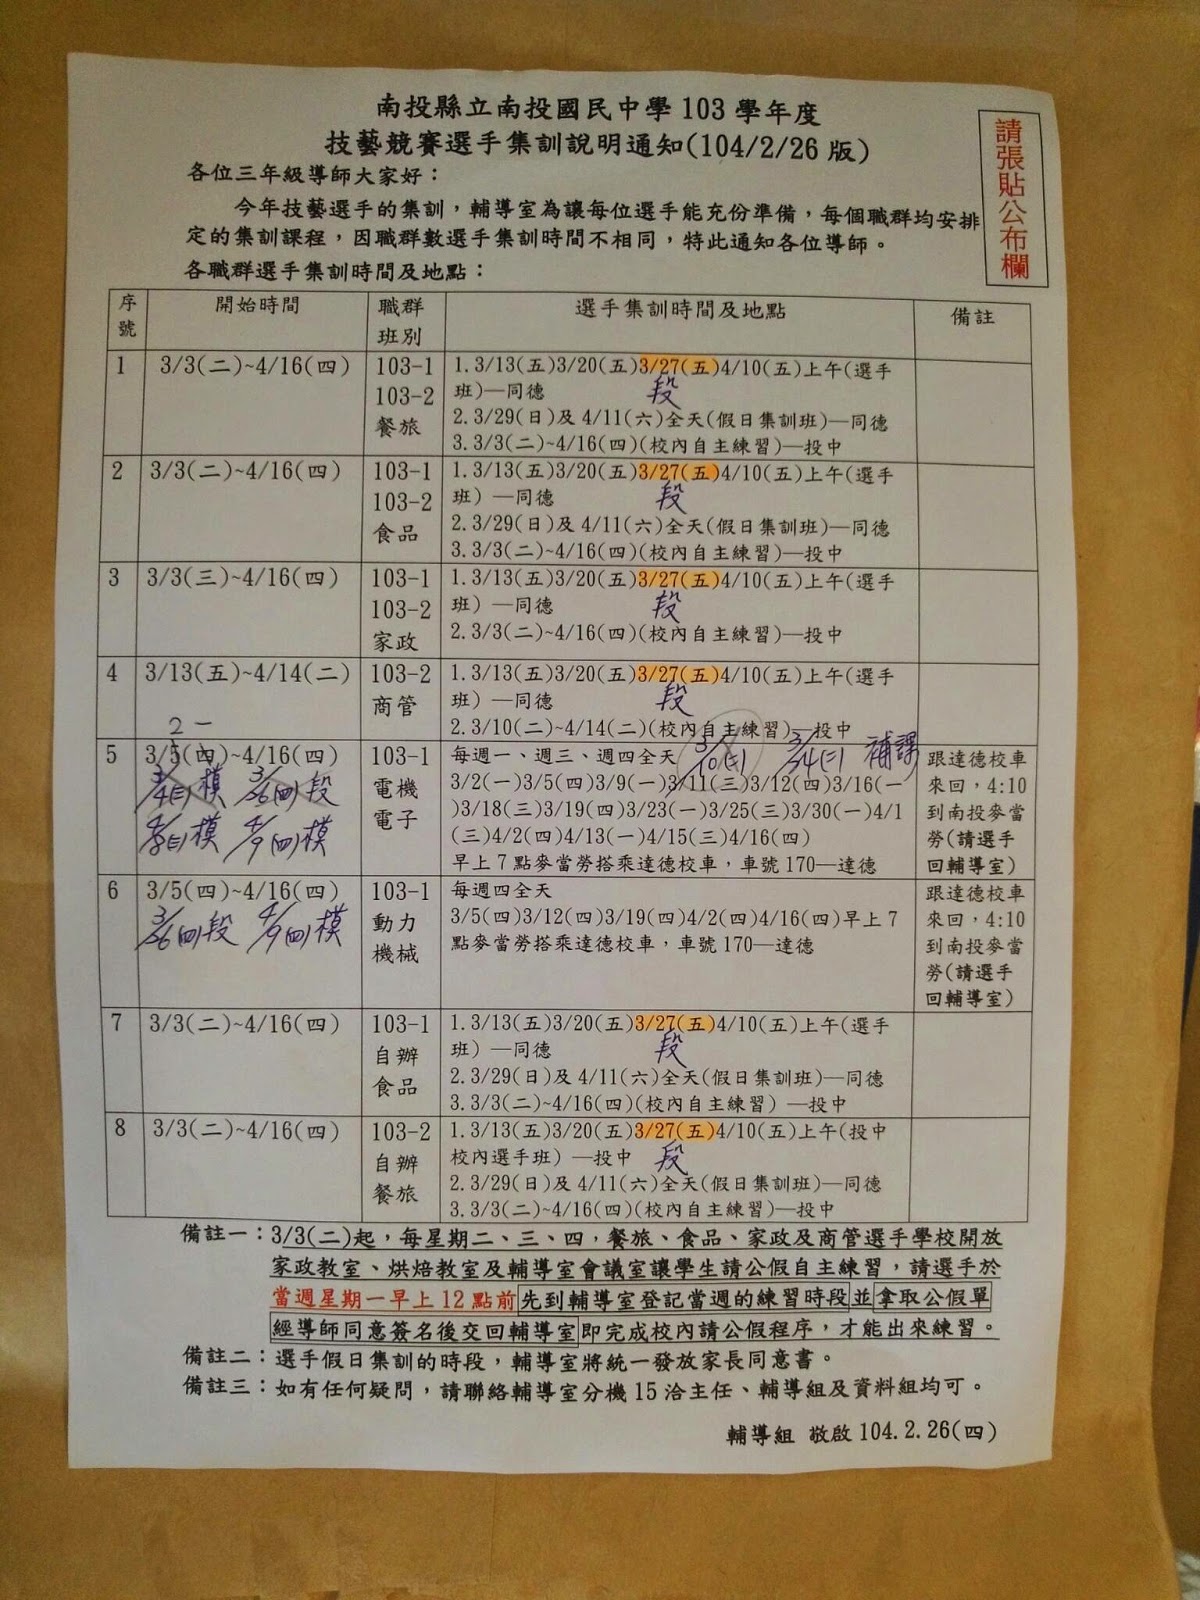 南投縣立南投國民中學 103 學年度
技藝競賽選手集訓說明通知(104/2/26 版)
請張貼公布欄
各位三年級導師大家好：
今年技藝選手的集訓，輔導室為讓每位選手能充份準備，每個職群均安排
定的集訓課程，因職群數選手集訓時間不相同，特此通知各位導師。
各職群選手集訓時間及地點：
序號 開始時間 職群班別 選手集訓時間及地點 備註
1 3/3(二)~4/16(四)
103-1
103-2
餐旅
1.3/13(五)3/20(五)3/27(五)4/10(五)上午(選手
班)—同德
段
2.3/29(日)及 4/11(六)全天(假日集訓班)—同德
3.3/3(二)~4/16(四)(校內自主練習)—投中
2 3/3(二)~4/16(四)
103-1
103-2
食品
1.3/13(五)3/20(五)3/27(五)4/10(五)上午(選手
班) —同德
段
2.3/29(日)及 4/11(六)全天(假日集訓班)—同德
3.3/3(二)~4/16(四)(校內自主練習)—投中
3 3/3(三)~4/16(四)
103-1
103-2
家政
1.3/13(五)3/20(五)3/27(五)4/10(五)上午(選手
班) —同德
段
2.3/3(二)~4/16(四)(校內自主練習)—投中
4 3/13(五)~4/14(二)
103-2
商管
1.3/13(五)3/20(五)3/27(五)4/10(五)上午(選手
班)—同德
段
2.3/10(二)~4/14(二)(校內自主練習)—投中
2 一
5 3/5(四)~4/16(四)
3/4(三)模 3/26(四)段
4/8(三)模 4/9(四)模
103-1
電機
電子
每週一、週三、週四全天
3/10(二) 3/24(二) 補課
3/2(一)3/5(四)3/9(一)3/11(三)3/12(四)3/16(一
)3/18(三)3/19(四)3/23(一)3/25(三)3/30(一)4/1
(三)4/2(四)4/13(一)4/15(三)4/16(四)
早上 7 點麥當勞搭乘達德校車，車號 170—達德
跟達德校車
來回，4:10
到南投麥當
勞(請選手
回輔導室)
6 3/5(四)~4/16(四)
3/26(四)段 4/9(四)模
103-1
動力
機械
每週四全天
3/5(四)3/12(四)3/19(四)4/2(四)4/16(四)早上 7
點麥當勞搭乘達德校車，車號 170—達德
跟達德校車
來回，4:10
到南投麥當
勞(請選手
回輔導室)
7 3/3(二)~4/16(四)
103-1
自辦
食品
1.3/13(五)3/20(五)3/27(五)4/10(五)上午(選手
班) —同德
段
2.3/29(日)及 4/11(六)全天(假日集訓班)—同德
3.3/3(二)~4/16(四)(校內自主練習) —投中
8 3/3(二)~4/16(四)
103-2
自辦
餐旅
1.3/13(五)3/20(五)3/27(五)4/10(五)上午(投中
校內選手班) —投中
段
2.3/29(日)及 4/11(六)全天(假日集訓班)—同德
3.3/3(二)~4/16(四)(校內自主練習)—投中
備註一：3/3(二)起，每星期二、三、四，餐旅、食品、家政及商管選手學校開放
家政教室、烘焙教室及輔導室會議室讓學生請公假自主練習，請選手於
當週星期一早上 12 點前先到輔導室登記當週的練習時段並拿取公假單
經導師同意簽名後交回輔導室即完成校內請公假程序，才能出來練習。
備註二：選手假日集訓的時段，輔導室將統一發放家長同意書。
備註三：如有任何疑問，請聯絡輔導室分機 15 洽主任、輔導組及資料組均可。
輔導組 敬啟 104.2.26(四)